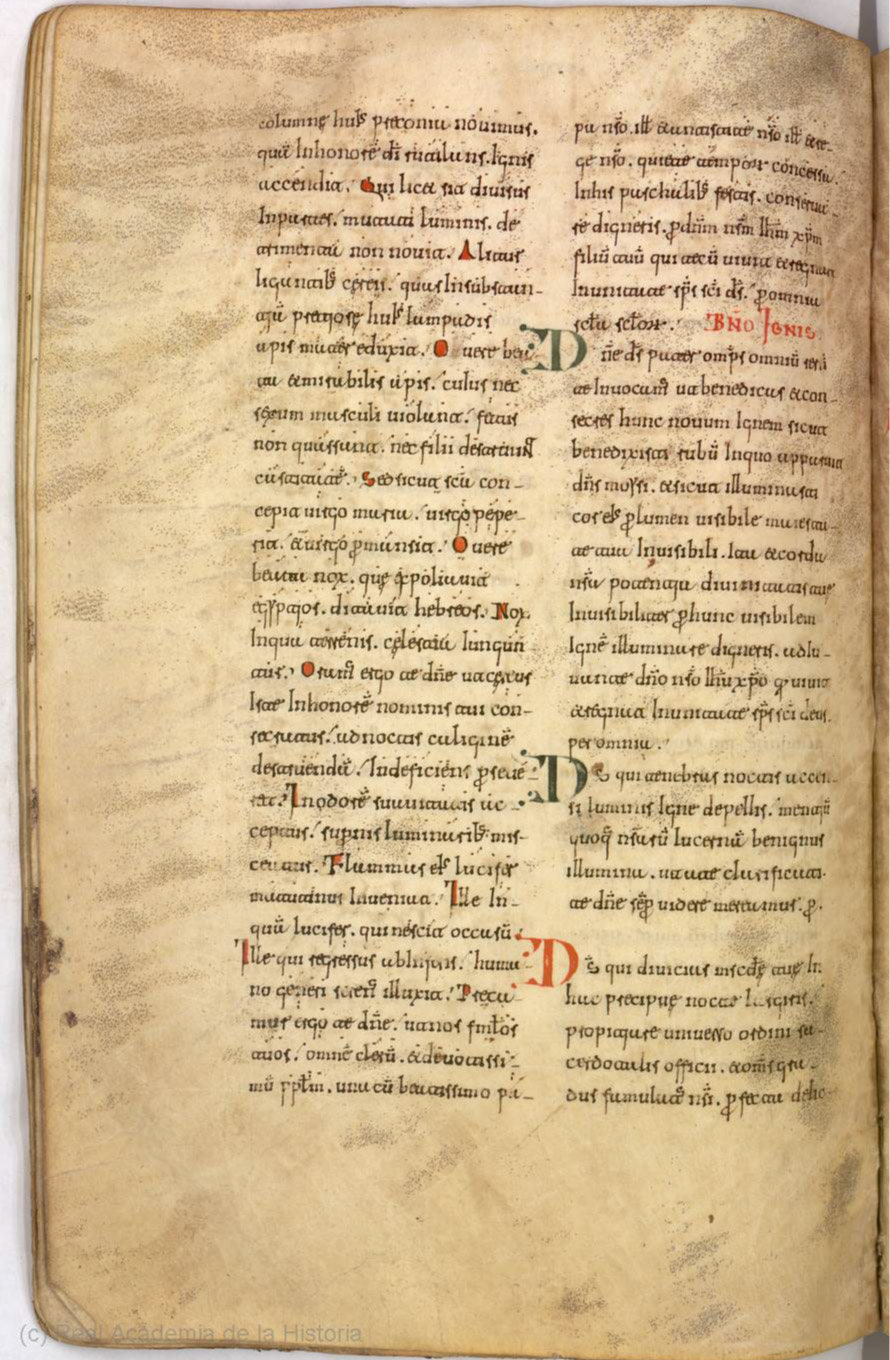 columnę hui᷒ preconia nouimus.
quā Inhonorē dī rutilans. Ignis
accendit. Qui licet sit diuisus
Inpartes. mutuati luminis. de
trimentū non nouit. Alitur
liquatib᷒ cęreis. quas Insubstan-
tiā pretiosę hui᷒ lampadis
apis mater eduxit. O uere bea
ta & mirabilis apis. cuius nec
sexum masculi uiolant. fetus
non quassant. nec filii destruūt
castitatē. Sed sicut scā con-
cepit uirgo maria. uirgo pepe-
rit. & uirgo p̄mansit. O uere
beata nox. quę expoliauit
egyptios. ditauit hebreos. Nox
Inqua terrenis. cęlestia Iungūn
tur. Oram̄ ergo te dn̄e ut cereus
Iste Inhonorē nominis tui con-
secratus. ad noctis caliginē
destruendā. Indeficiens perseue
ret. Inodorē suauitatis ac-
ceptus. supernis luminarib᷒ mis-
ceatur. Flammas ei᷒ lucifer
matutinus Inueniat. Ille In-
quā lucifer. qui nescit occasū.
Ille qui regressus ab Inferis. huma
no generi seren᷒ illuxit. Preca
mur ergo te dn̄e. ut nos famlōs
tuos. omnē clerū. & deuotissi-
mū pplm̄. una cū beatissimo pa-
pa nr̄o. ill̄ & antistite nr̄o ill̄ & re-
ge nr̄o. quiete temporū concessa.
Inhis paschalib᷒ festis. conserua-
re digneris. p̄ dn̄m nr̄m Ih̄m xp̄m
filiū tuū qui tecū uiuit & regnat
Inunitate sp̄s sc̄i ds̄. p̄ omnia
scl̄a scl̄orum. BN̄O IGNIS
Dn̄e ds̄ pater omp̄s omniū
te Inuocam᷒ ut benedicas & con-
secres hunc nouum Ignem sicut
benedixisti rubū Inquo apparuit
dn̄s moysi. & sicut illuminasti
cor ei᷒ p̄ lumen uisibile
Inuisibili. Ita & corda
nr̄a potentia diuinitatis tue
Inuisibiliter p̄ hunc uisibilem
Ignē illuminare digneris. adiu-
uante dn̄o nr̄o Ih̄u xp̄o q̄ uiuit
& regnat Inunitate sp̄s sc̄i deus.
per omnia.
Ds̄ qui tenebras noctis accen-
si luminis Igne depellis. mentiū
quoq̄ nr̄arū lucernā benignus
illumina. ut uitae clarificati
te dn̄e semp̄ uidere mereamus. p̄.
Ds̄ qui diuicias mscdę tuę In
hac precipuę nocte largiris.
propiciare uniuerso ordini sa-
cerdotalis officii. & om̄s gra-
dus famulat᷒ nr̄i. p̄fecta delic-